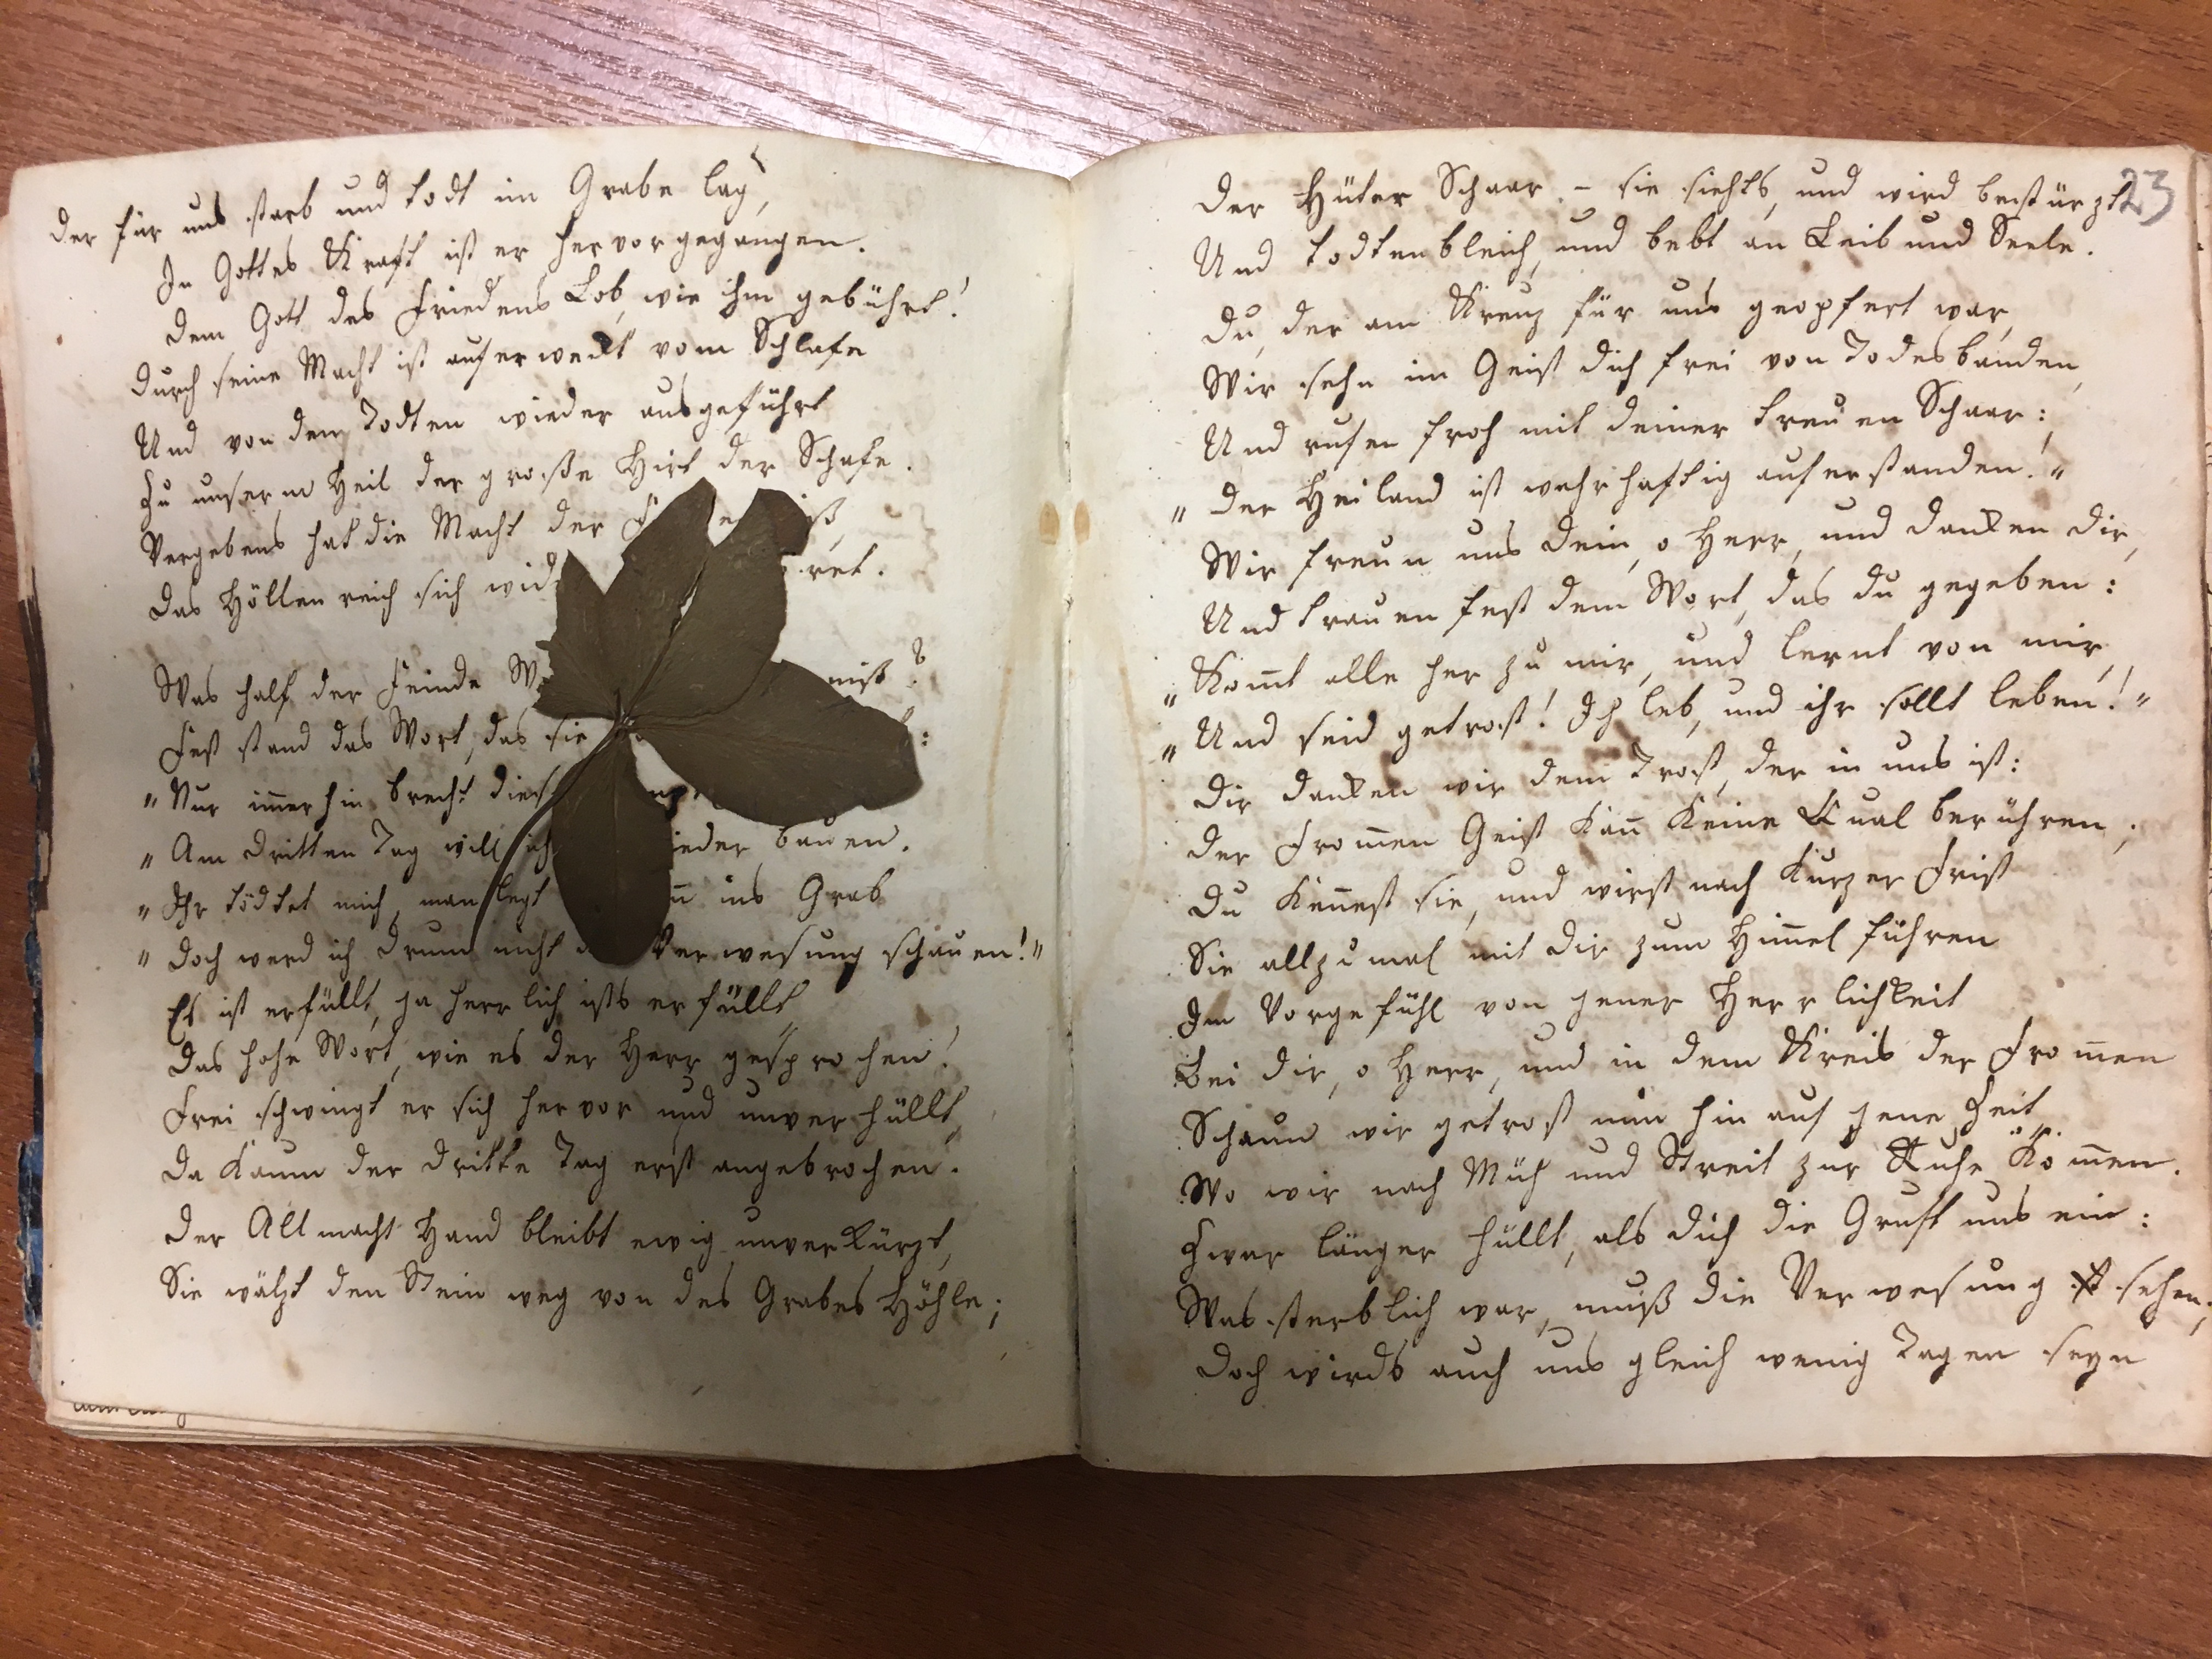 Der für uns starb und todt im Grabe lag,
In Gottes Kraft ist er hervorgegangen.
Dem Gott des Friedens Lob, wie ihm gebührt!
Durch seine Macht ist auferwekt vom Schlafe
Und von den Todten wieder ausgeführt
Zu unserm Heil der große Hirt der Schafe.
Vergebens hat die Macht der
Das Höllenreich sich ret.
Was half der Feinde niß?
Fest stand das Wort, das sie :
"Nur im̄erhin brecht
"Am dritten Tag will ich ieder bauen.
"Ihr tödtet mich, man legt ins Grab
"Doch werd ich drum nicht Verwesung schauen!"
Es ist erfüllt, ja herrlich ists erfüllt
Das hohe Wort, wie es der Herr gesprochen!
Frei schwingt er sich hervor und unverhüllt,
Da kaum der dritte Tag erst angebrochen.
Der Allmacht Hand bleibt ewig unverkürzt,
Sie wälzt den Stein weg von des Grabes Höhle;
23
Der Hüter Schaar – sie siehts, und wird bestürzt
Und todtenbleich, und bebt an Leib und Seele.
Du, der am Kreuz für uns geopfert war,
Wir sehn im Geist dich frei von Todesbanden,
Und rufen froh mit deiner treuen Schaar:
"Der Heiland ist wahrhaftig auferstanden!"
Wir freun uns dein, o Herr, und danken dir,
Und trauen fest dem Wort, das du gegeben:
"Kom̄t alle her zu mir, und lernt von mir,
"Und seid getrost! Ich leb, und ihr sollt leben!"
Dir danken wir dem Trost, der in uns ist:
Der From̄en Geist kan̄ keine Qual berühren;
Du ken̄est sie, und wirst nach kurzer Frist
Sie allzumal mit dir zum Him̄el führen
Im Vorgefühl von jener Herrlichkeit
Bei dir, o Herr, und in dem Kreis der From̄en
Schaun wir getrost nun hin auf jene Zeit,
Wo wir nach Müh und Streit zur Ruhe köm̄en.
Zwar länger hüllt, als dich die Gruft uns ein:
Was sterblich war, muß die Verwesung sehen;
Doch wirds auch uns gleich wenig Tagen seyn